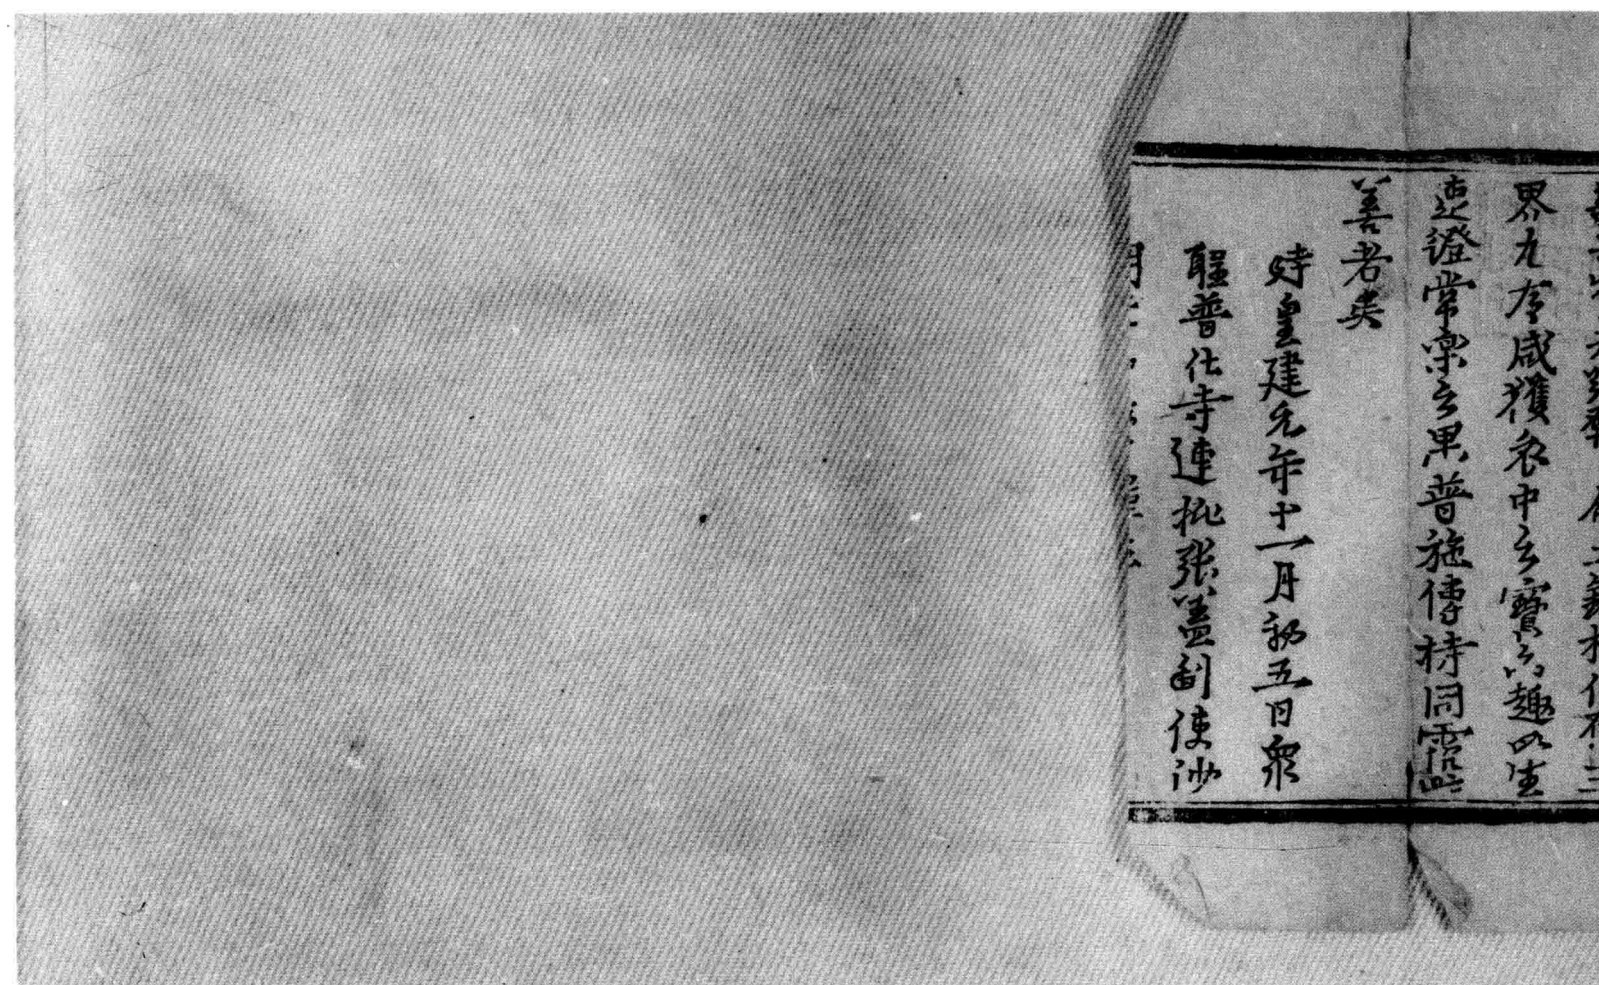 界九有咸獲衣中之寶六趣四生
速證常樂之果普施傳持同霑此
善者矣
時皇建元年十一月初五日眾
聖普化寺連批張蓋副使沙